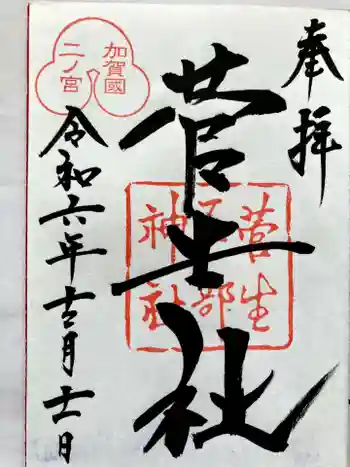 奉拝
菅生社
菅生
石部
神社
加賀國
二ノ宮
令和六年十二月十一日